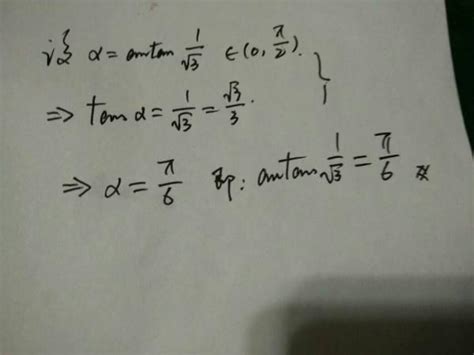 设 α = arctan 1/√3 ∈ (0, π/2).
⇒ tan α = 1/√3 = √3/3.
⇒ α = π/6 即: arctan 1/√3 = π/6